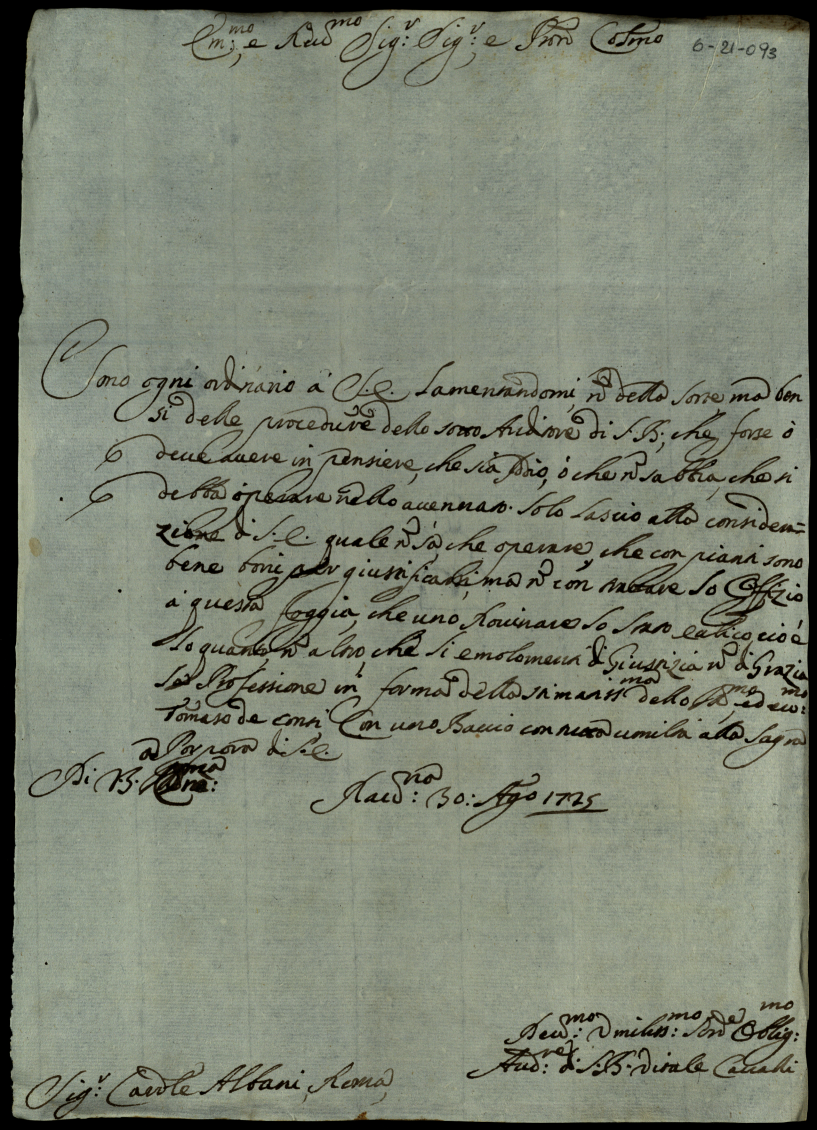 Em:mo, e Reu:mo Sig:r Sig:r, e Pron Colmo 6-21-093
Sono ogni ordinario à S.E. lamentandomi, n. della sorte ma ben
si delle procedure dello Auditore di S.B; che forse ò
deue auere in pensiere, che sia Dio, ò che n. sabbia, che si
debba operare nello auenire. Solo lascio alla considera=
zione di S.E. quale n. sà, che operare, che con pianti sono
bene boni per giustificarsi, ma n. con rubare lo Offizio
à questa foggia, che uno Rouinare lo stato, cio è
lo quanto n. altro, che li emolomenti di Giustizia n. di Grazia
la Professione in forma della dello ed
Tomaso de Conti Con uno Baccio con umiltà alla Sagra
Porpora di S.E.
Di V. Em:ma
30: Ago 1725
Deu:mo Vmiliss:mo Ser:e Oblig:mo
Aud:re di S.B. Vitale Caualli
Sig:r Cardle Albani, Roma,